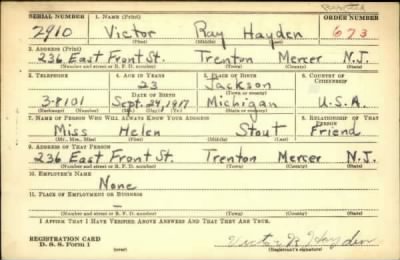 SERIAL NUMBER 1. NAME (Print) ORDER NUMBER
2910 Victor Ray Hayden 673
(First) (Middle) (Last)
2. ADDRESS (Print)
236 East Front St. Trenton Mercer N.J.
(Number and street or R. F. D. number) (Town) (County) (State)
3. TELEPHONE 4. AGE IN YEARS 5. PLACE OF BIRTH 6. COUNTRY OF CITIZENSHIP
23 Jackson
DATE OF BIRTH (Town or county)
3-8101 Sept. 24, 1917 Michigan U.S.A.
(Exchange) (Number) (Mo.) (Day) (Yr.) (State or country)
7. NAME OF PERSON WHO WILL ALWAYS KNOW YOUR ADDRESS 8. RELATIONSHIP OF THAT PERSON
Miss Helen Stout Friend
(Mr., Mrs., Miss) (First) (Middle) (Last)
9. ADDRESS OF THAT PERSON
236 East Front St. Trenton Mercer N.J.
(Number and street or R. F. D. number) (Town) (County) (State)
10. EMPLOYER'S NAME
None
11. PLACE OF EMPLOYMENT OR BUSINESS
(Number and street or R. F. D. number) (Town) (County) (State)
I AFFIRM THAT I HAVE VERIFIED ABOVE ANSWERS AND THAT THEY ARE TRUE.
REGISTRATION CARD
D. S. S. Form 1 (over) Victor R. Hayden
(Registrant's signature)